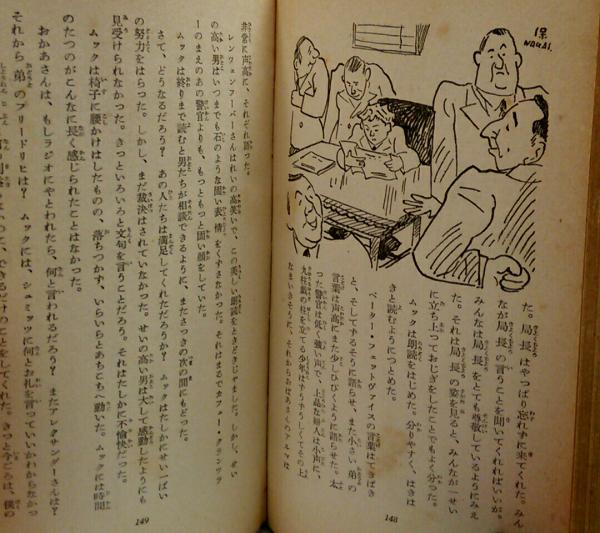 保
NAGAI.
た。局長はやっぱり忘れずに来てくれた。みん
なが局長の言うことを聞いてくれればいいが。
みんなは局長をとても尊敬しているようにみえ
た。それは局長の姿を見ると、みんなが一せい
に立ち上っておじぎをしたことでもよく分った。
ムックは朗読をはじめた。分りやすく、はきは
きと読むようにつとめた。
ペーター・フェットヴァイスの言葉はてきぱき
と、そしてするそうに語らせ、また小さい弟の
言葉は声高にまた少しひびくように語らせた。太
った警官は低く、強い声で、上品な婦人は小声に、
九柱戯の柱を立てる少年はずうずうしくてその上
148
非常に声高に、それぞれ語った。
レンヴェンフーバーさんはれいの高笑いで、この美しい朗読をときどきじゃました。しかし、せい
の高い男はいつまでも石のような固い表情をくずさなかった。それはまるでカフェー・クランツラ
ーのまえのあの警官よりも、もっともっと固い顔をしていた。
ムックは終りまで読むと男たちが相談できるように、またさっきの次の間にもどった。
さて、どうなるだろう？あの人たちは満足してくれただろうか？ムックはたしかにせい一ぱい
の努力をはらった。しかし、まだ裁決はされていなかった。せいの高い男は大して感動したようにも
見受けられなかった。きっといろいろと文句を言うことだろう。それはたしかに不愉快だった。
ムックは椅子に腰かけはしたものの、落ちつかず、いらいらとあちこちへ動いた。ムックには時間
のたつのがこんなに長く感じられたことはなかった。
おかあさんは、もしラジオにやとわれたら、何と言われるだろう？またアレキサンダーさんは？
それから弟のフリードリヒは？ムックには、シュミッツに何とお礼を言っていいかわからなかっ
149